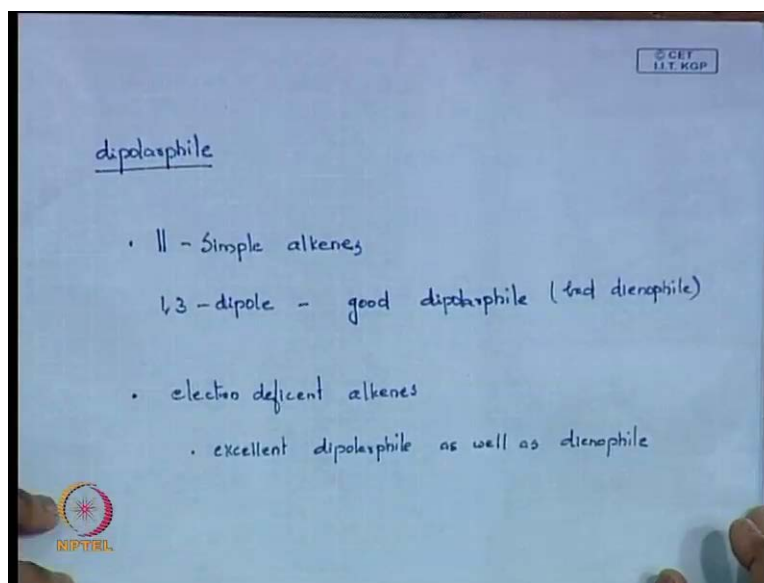 © CET
I.I.T. KGP
dipolarphile
· || - Simple alkenes
1,3 - dipole - good dipolarphile (bad dienophile)
· electro deficent alkenes
· excellent dipolarphile as well as dienophile
NPTEL